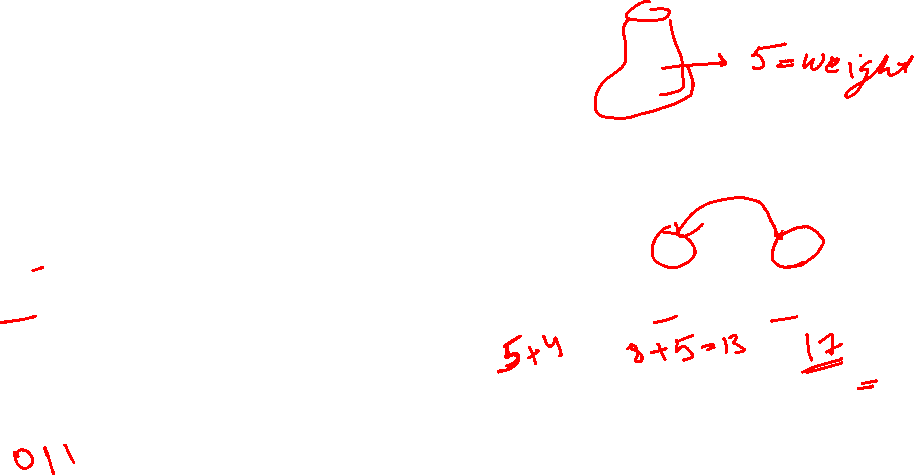 5=weight
5+4 8+5=13 17
011